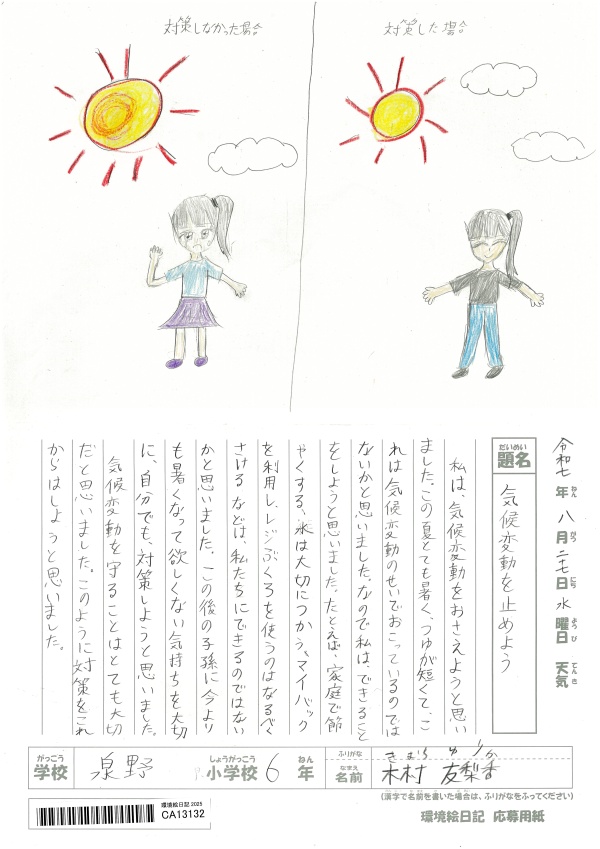 対策しなかった場合
対策した場合
令和七年八月二七日水曜日天気
ねん がつ にち ようび てんき
だいめい
題名
気候変動を止めよう
私は、気候変動をおさえようと思い
ました。この夏とても暑く、つゆが短くて、こ
れは気候変動のせいでおこっているのでは
ないかと思いました。なので私は、できること
をしようと思いました。たとえば、家庭で節
やくする、水は大切につかう、マイバック
を利用し、レジぶくろを使うのはなるべく
さける などは、私たちにできるのではない
かと思いました。この後の子孫に今より
も暑くなって欲しくない気持ちを大切
に、自分でも、対策しようと思いました。
気候変動を守ることはとても大切
だと思いました。このように対策をこれ
からはしようと思いました。
がっこう しょうがっこう ねん
学校 泉野 小学校 6 年
ふりがな きむら ゆりか
なまえ
名前 木村 友梨香
(漢字で名前を書いた場合は、ふりがなをふってください)
環境絵日記 2025
CA13132
環境絵日記 応募用紙